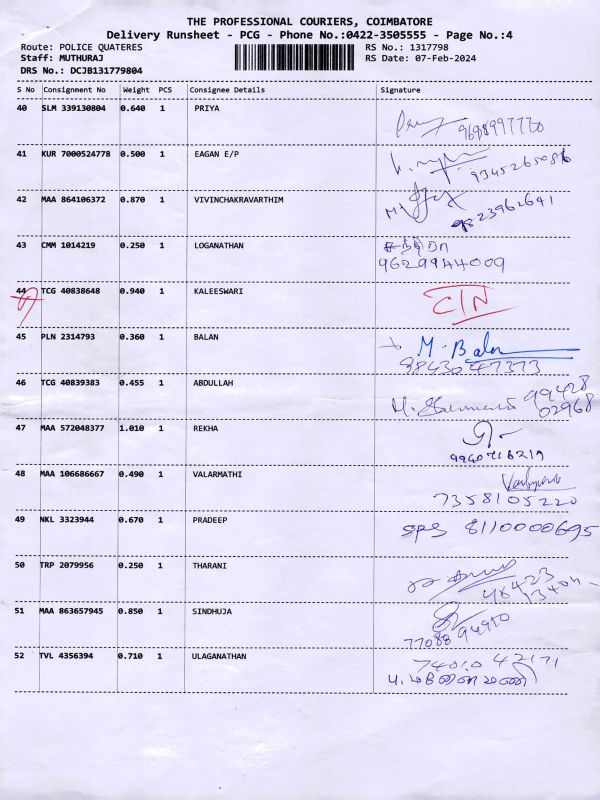 THE PROFESSIONAL COURIERS, COIMBATORE
Delivery Runsheet - PCG - Phone No.:0422-3505555 - Page No.:4
Route: POLICE QUATERES RS No.: 1317798
Staff: MUTHURAJ RS Date: 07-Feb-2024
DRS No.: DCJB131779804
S No Consignment No Weight PCS Consignee Details Signature
40 SLM 339130804 0.640 1 PRIYA
41 KUR 7000524778 0.500 1 EAGAN E/P
9345265086
42 MAA 864106372 0.870 1 VIVINCHAKRAVARTHIM
9823962641
43 CMM 1014219 0.250 1 LOGANATHAN சந்திரா
9629944009
44 TCG 40838648 0.940 1 KALEESWARI CTN
45 PLN 2314793 0.360 1 BALAN M. Balan
9843047373
46 TCG 40839383 0.455 1 ABDULLAH 99428
02968
47 MAA 572048377 1.010 1 REKHA
9940716219
48 MAA 106686667 0.490 1 VALARMATHI
7358105220
49 NKL 3323944 0.670 1 PRADEEP SPS 8110000695
50 TRP 2079956 0.250 1 THARANI
51 MAA 863657945 0.850 1 SINDHUJA
77088 94950
52 TVL 4356394 0.710 1 ULAGANATHAN 74010 42171